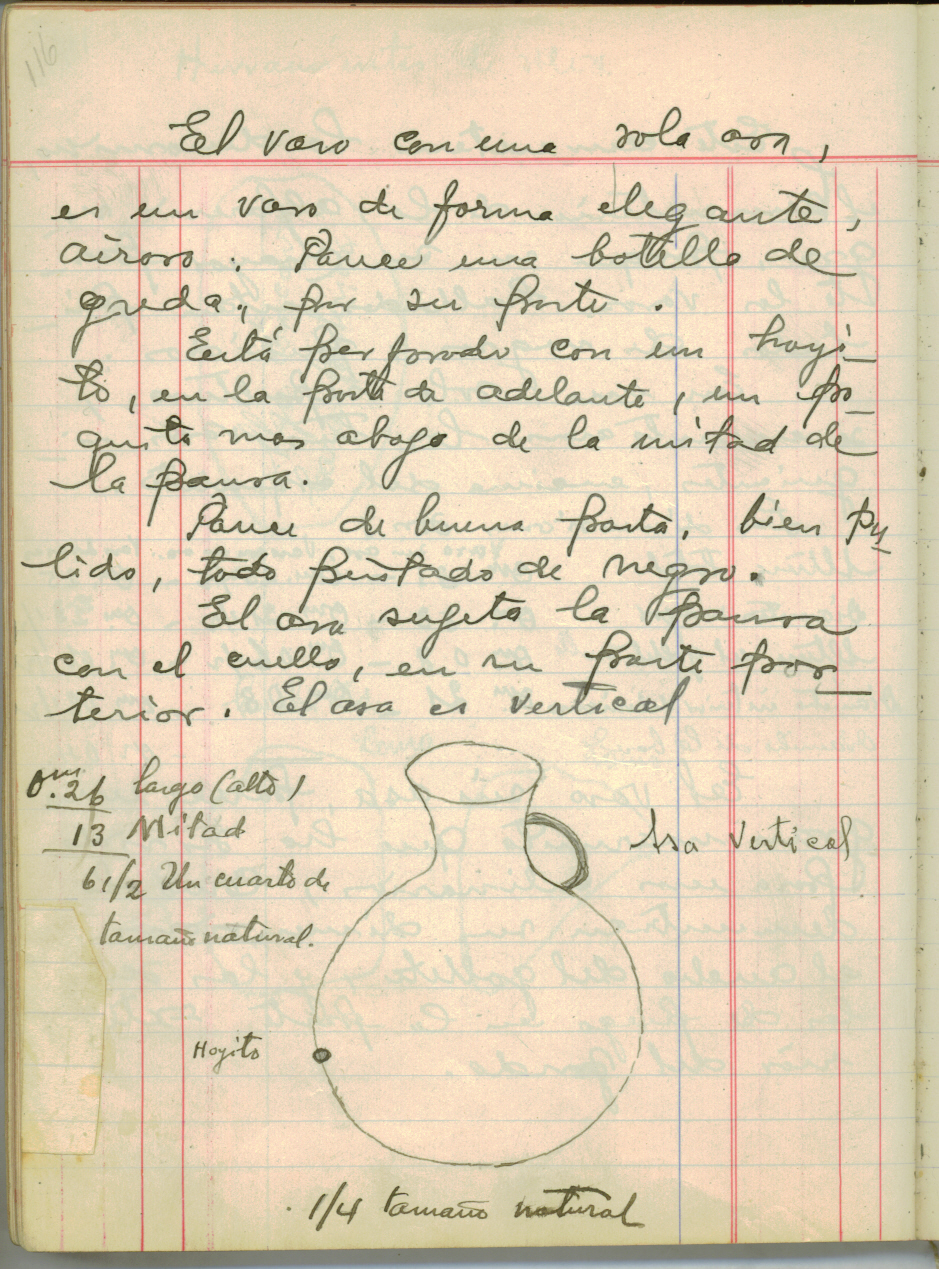 116
El vaso con una sola asa,
es un vaso de forma elegante,
airoso. Parece una botella de
greda, por su porte.
Está perforado con un hoyi-
to, en la parte de adelante, un po-
quito mas abajo de la mitad de
la panza.
Parece de buena pasta, bien pu-
lido, todo pintado de negro.
El asa sugeta la panza
con el cuello, en su parte pos-
terior. El asa es vertical
0.m26 largo (alto)
13 Mitad
6 1/2 Un cuarto de
tamaño natural.
Asa vertical
Hoyito
1/4 tamaño natural